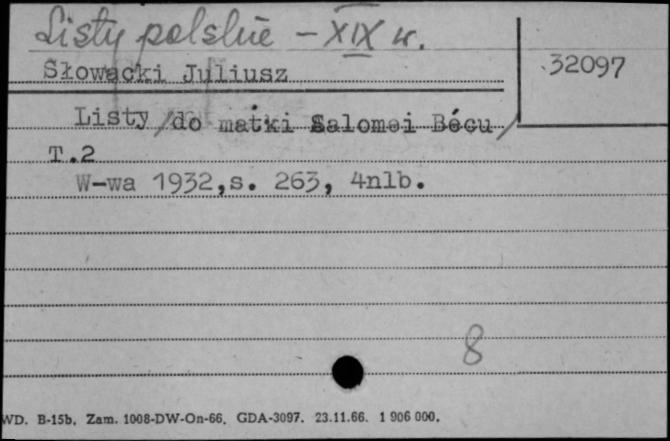 Listy polskie - XIX w.
Słowacki Juliusz
32097
Listy /do matki Salomei Bécu/
T.2
W-wa 1932,s. 263, 4nlb.
8
WD. B-15b. Zam. 1008-DW-On-66. GDA-3097. 23.11.66. 1 906 000.